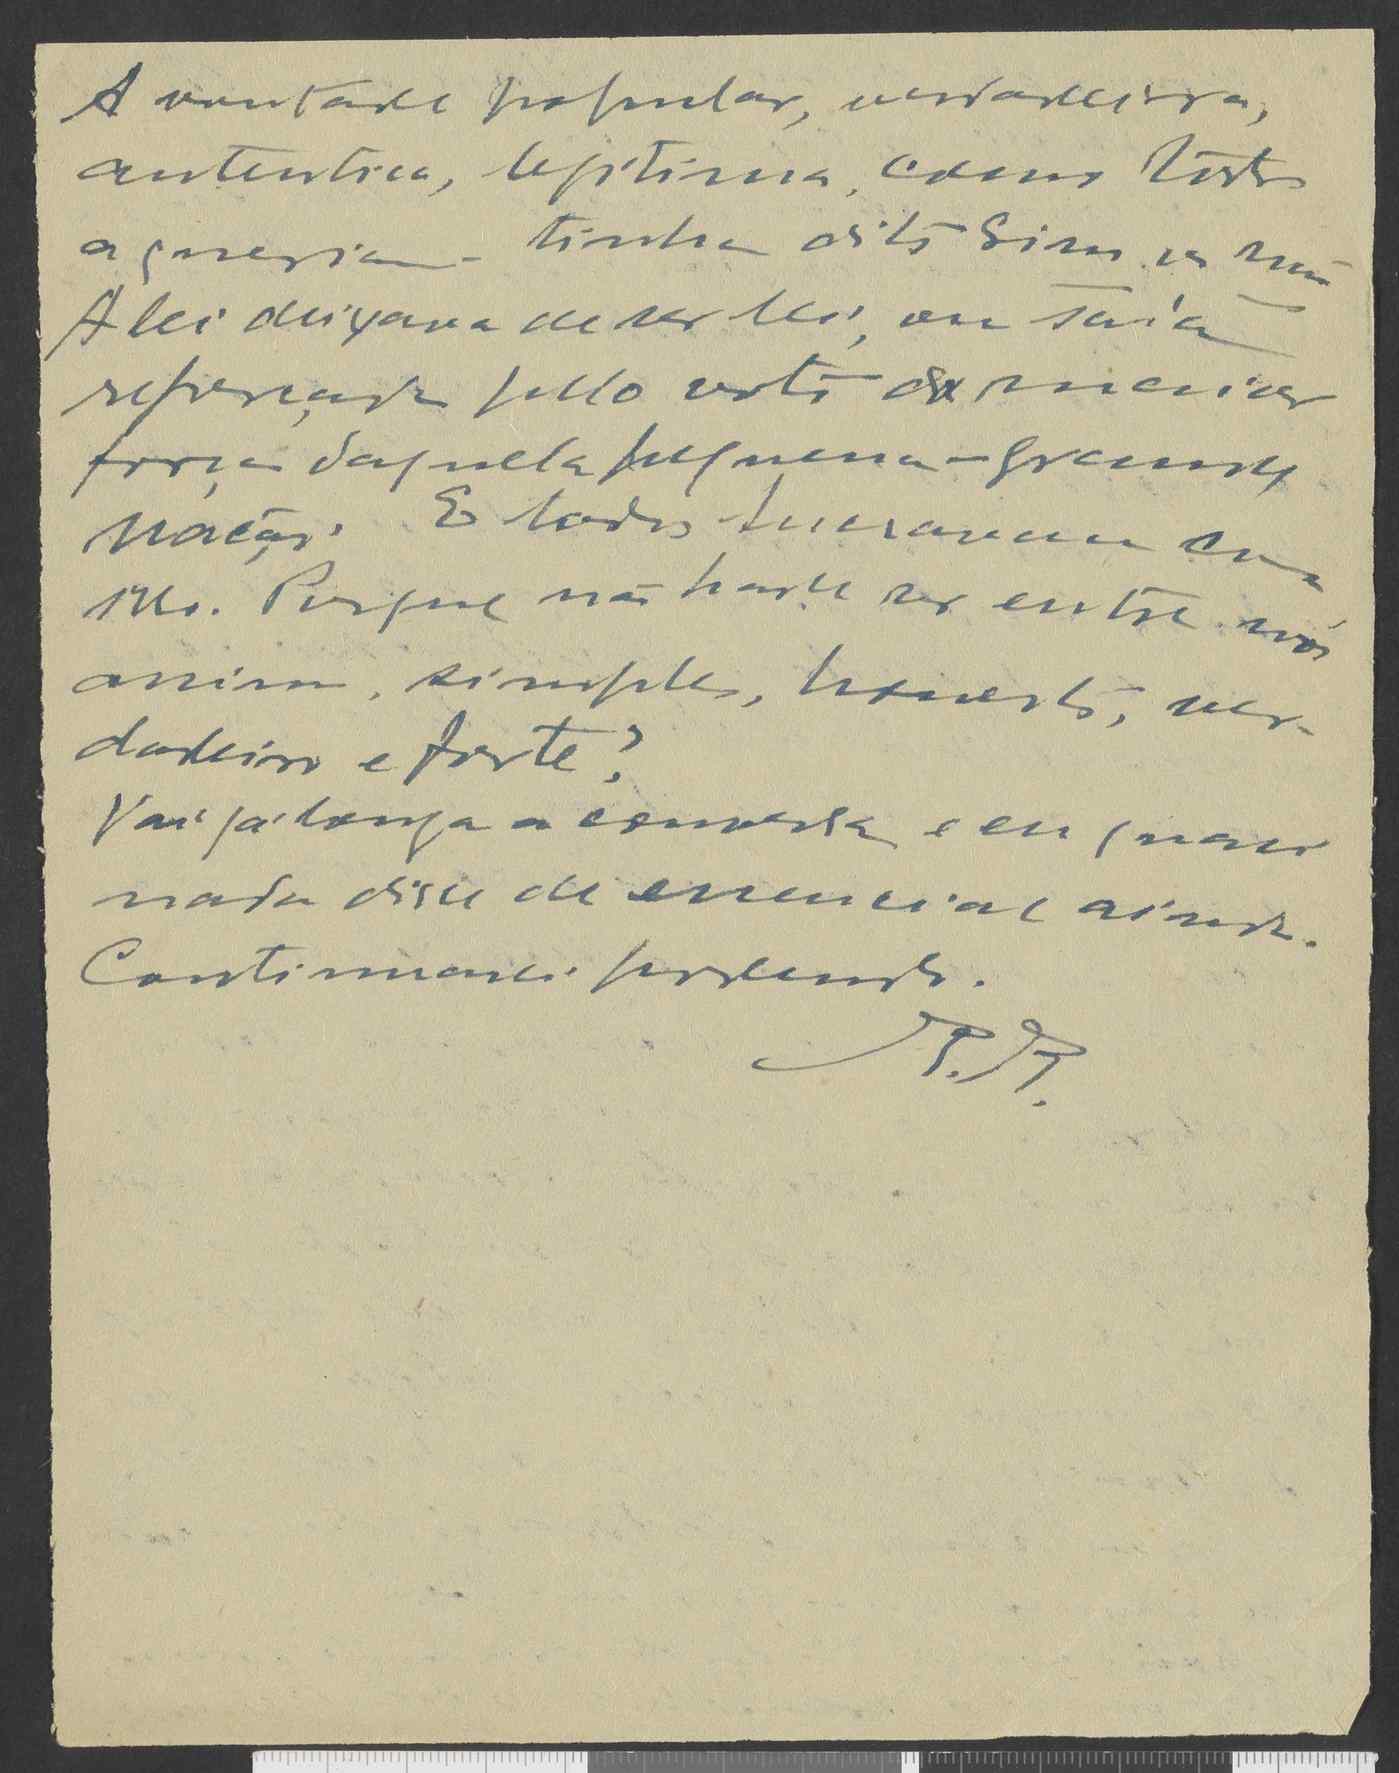 A vontade popular, verdadeira,
autentica, legitima, como todos
a queriam - tinha dito Sim ou não
A lei deixava de ser lei, ou saía
reforçada pelo voto da maior
força daquela pequena-grande
nação. E todos ficavam com
isso. Porque não hade ser entre nós
assim, simples, honesto, ver-
dadeiro e forte?
Vai já longa a conversa e eu quasi
nada disse de essencial ainda.
Continuarei podendo.